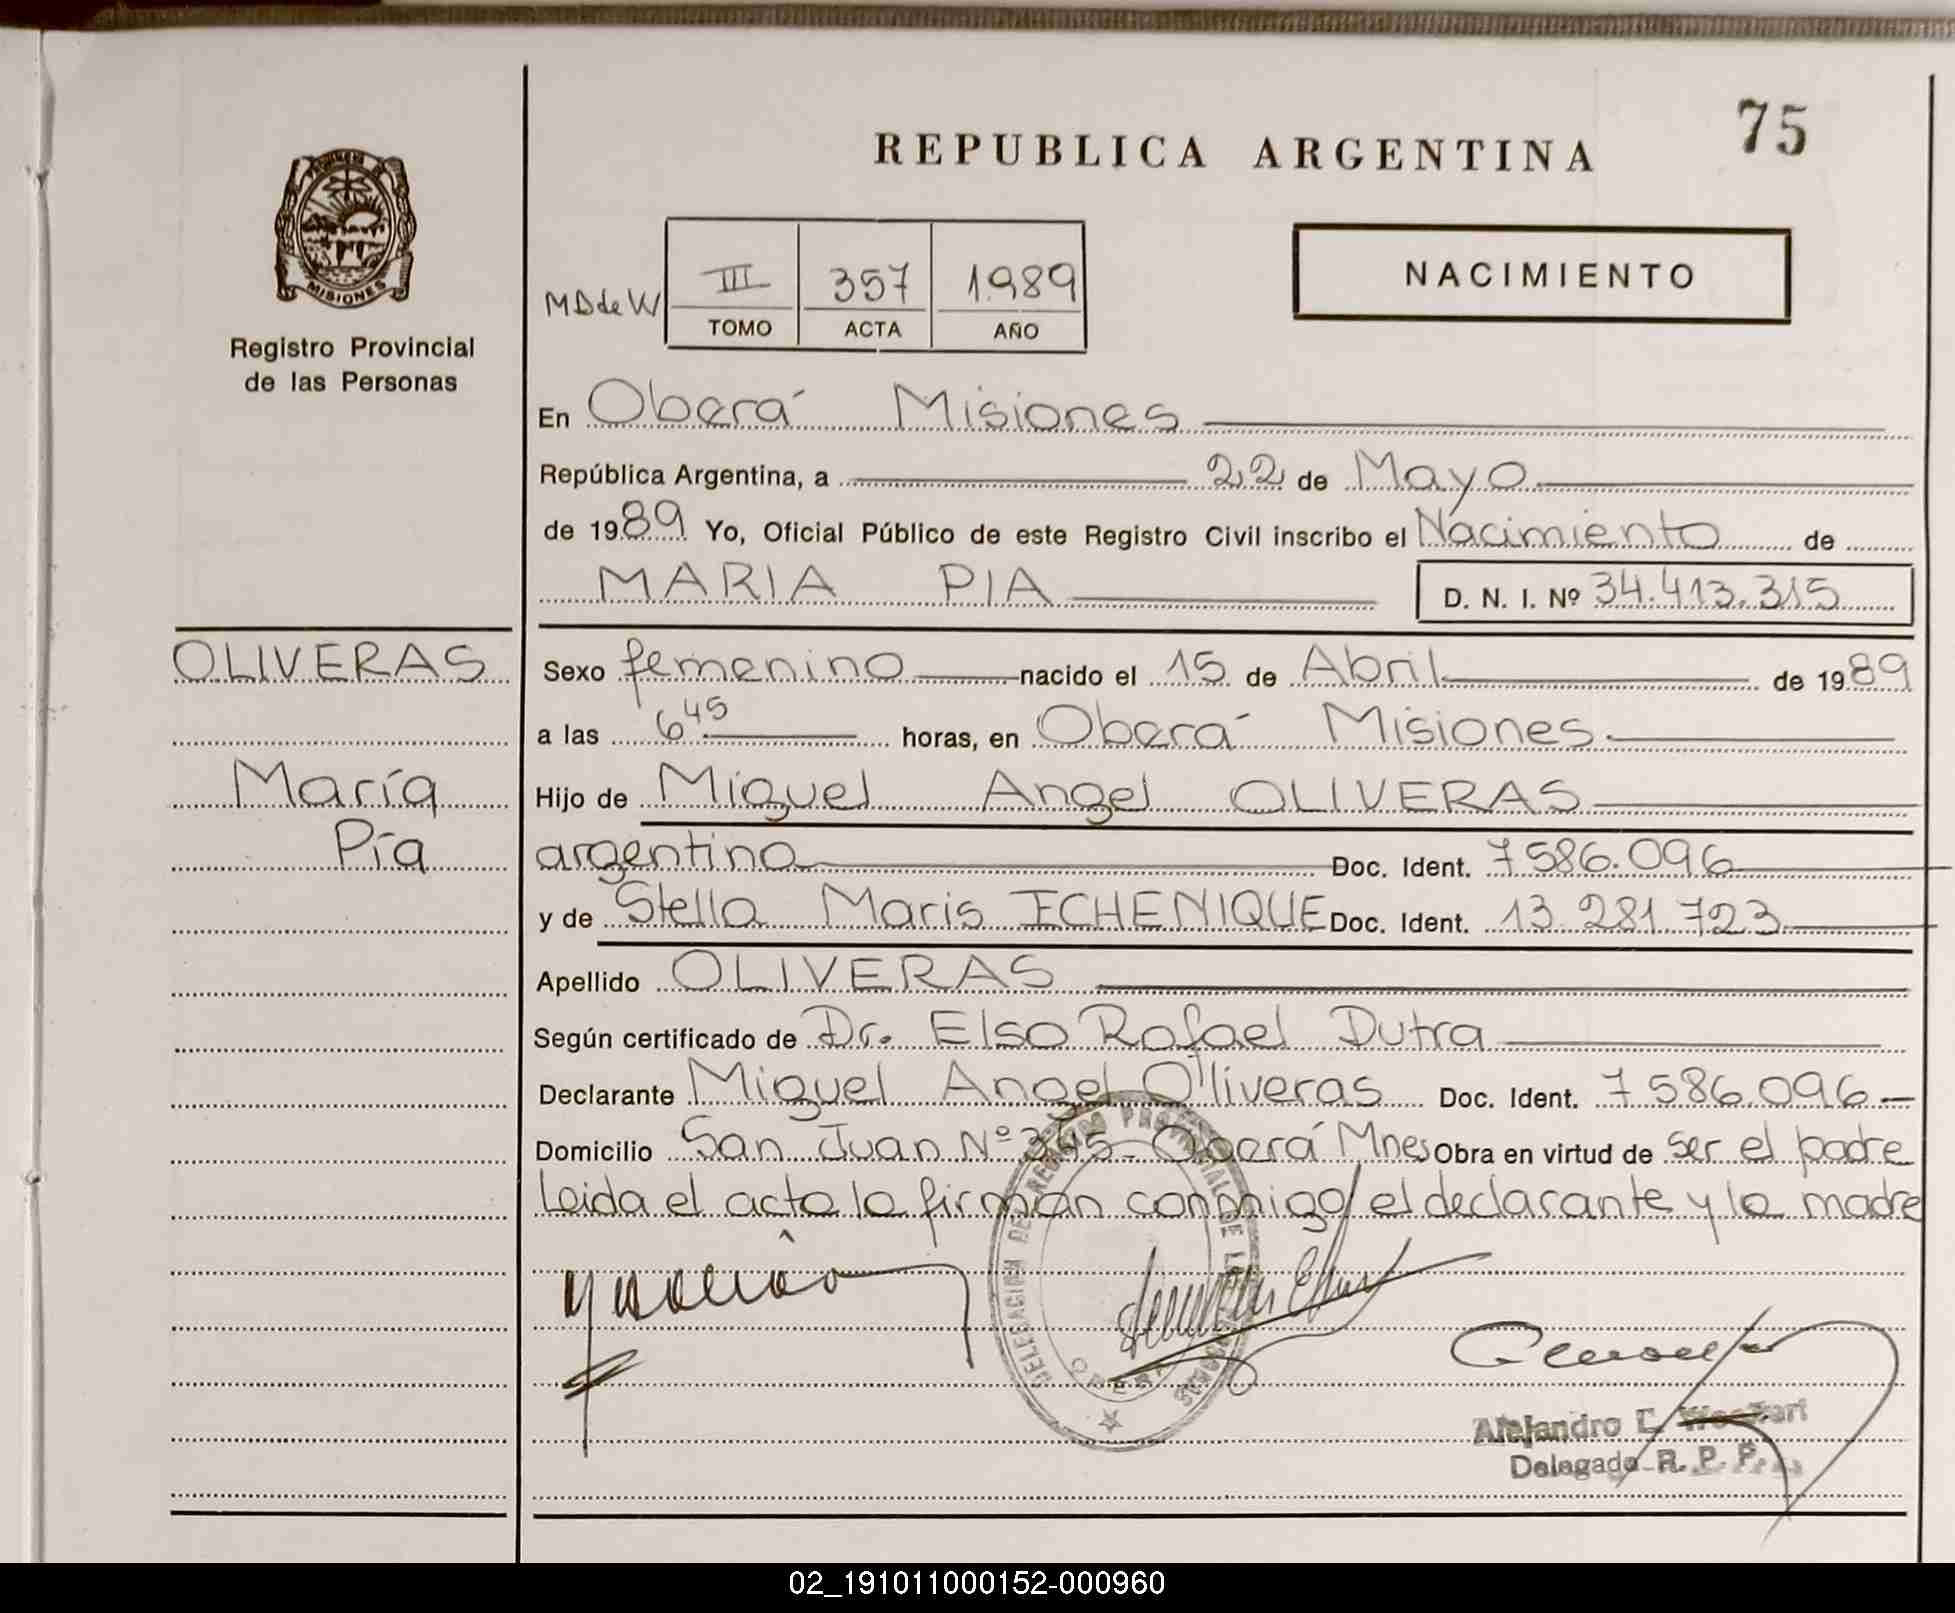 75
REPUBLICA ARGENTINA
MISIONES
Registro Provincial
de las Personas
NACIMIENTO
MD de W
III 357 1989
TOMO ACTA AÑO
En Oberá Misiones
República Argentina, a 22 de Mayo
de 1989 Yo, Oficial Público de este Registro Civil inscribo el Nacimiento de
MARIA PIA D. N. I. Nº 34.413.315
OLIVERAS
María
Pía
Sexo femenino nacido el 15 de Abril de 1989
a las 6 45 horas, en Oberá Misiones
Hijo de Miguel Angel OLIVERAS
argentino Doc. Ident. 7586.096
y de Stella Maris ECHENIQUE Doc. Ident. 13.281.723
Apellido OLIVERAS
Según certificado de Dr. Elso Rafael Dutra
Declarante Miguel Angel Olliveras Doc. Ident. 7586.096
Domicilio San Juan Nº 345 - Oberá Mnes Obra en virtud de ser el padre
Leida el acta la firman conmigo el declarante y la madre
DELEGACION DEL REGISTRO PROVINCIAL DE LAS PERSONAS
OBERA
Alejandro E.
Delegado R. P. P.
02_191011000152-000960